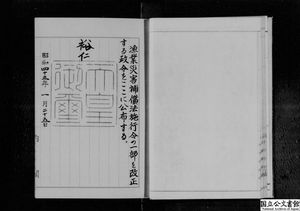 漁業災害補償法施行令の一部を改正
する政令をここに公布する。
裕仁
天皇御璽
昭和四十五年一月
内閣
国立公文書館
National Archives of Japan